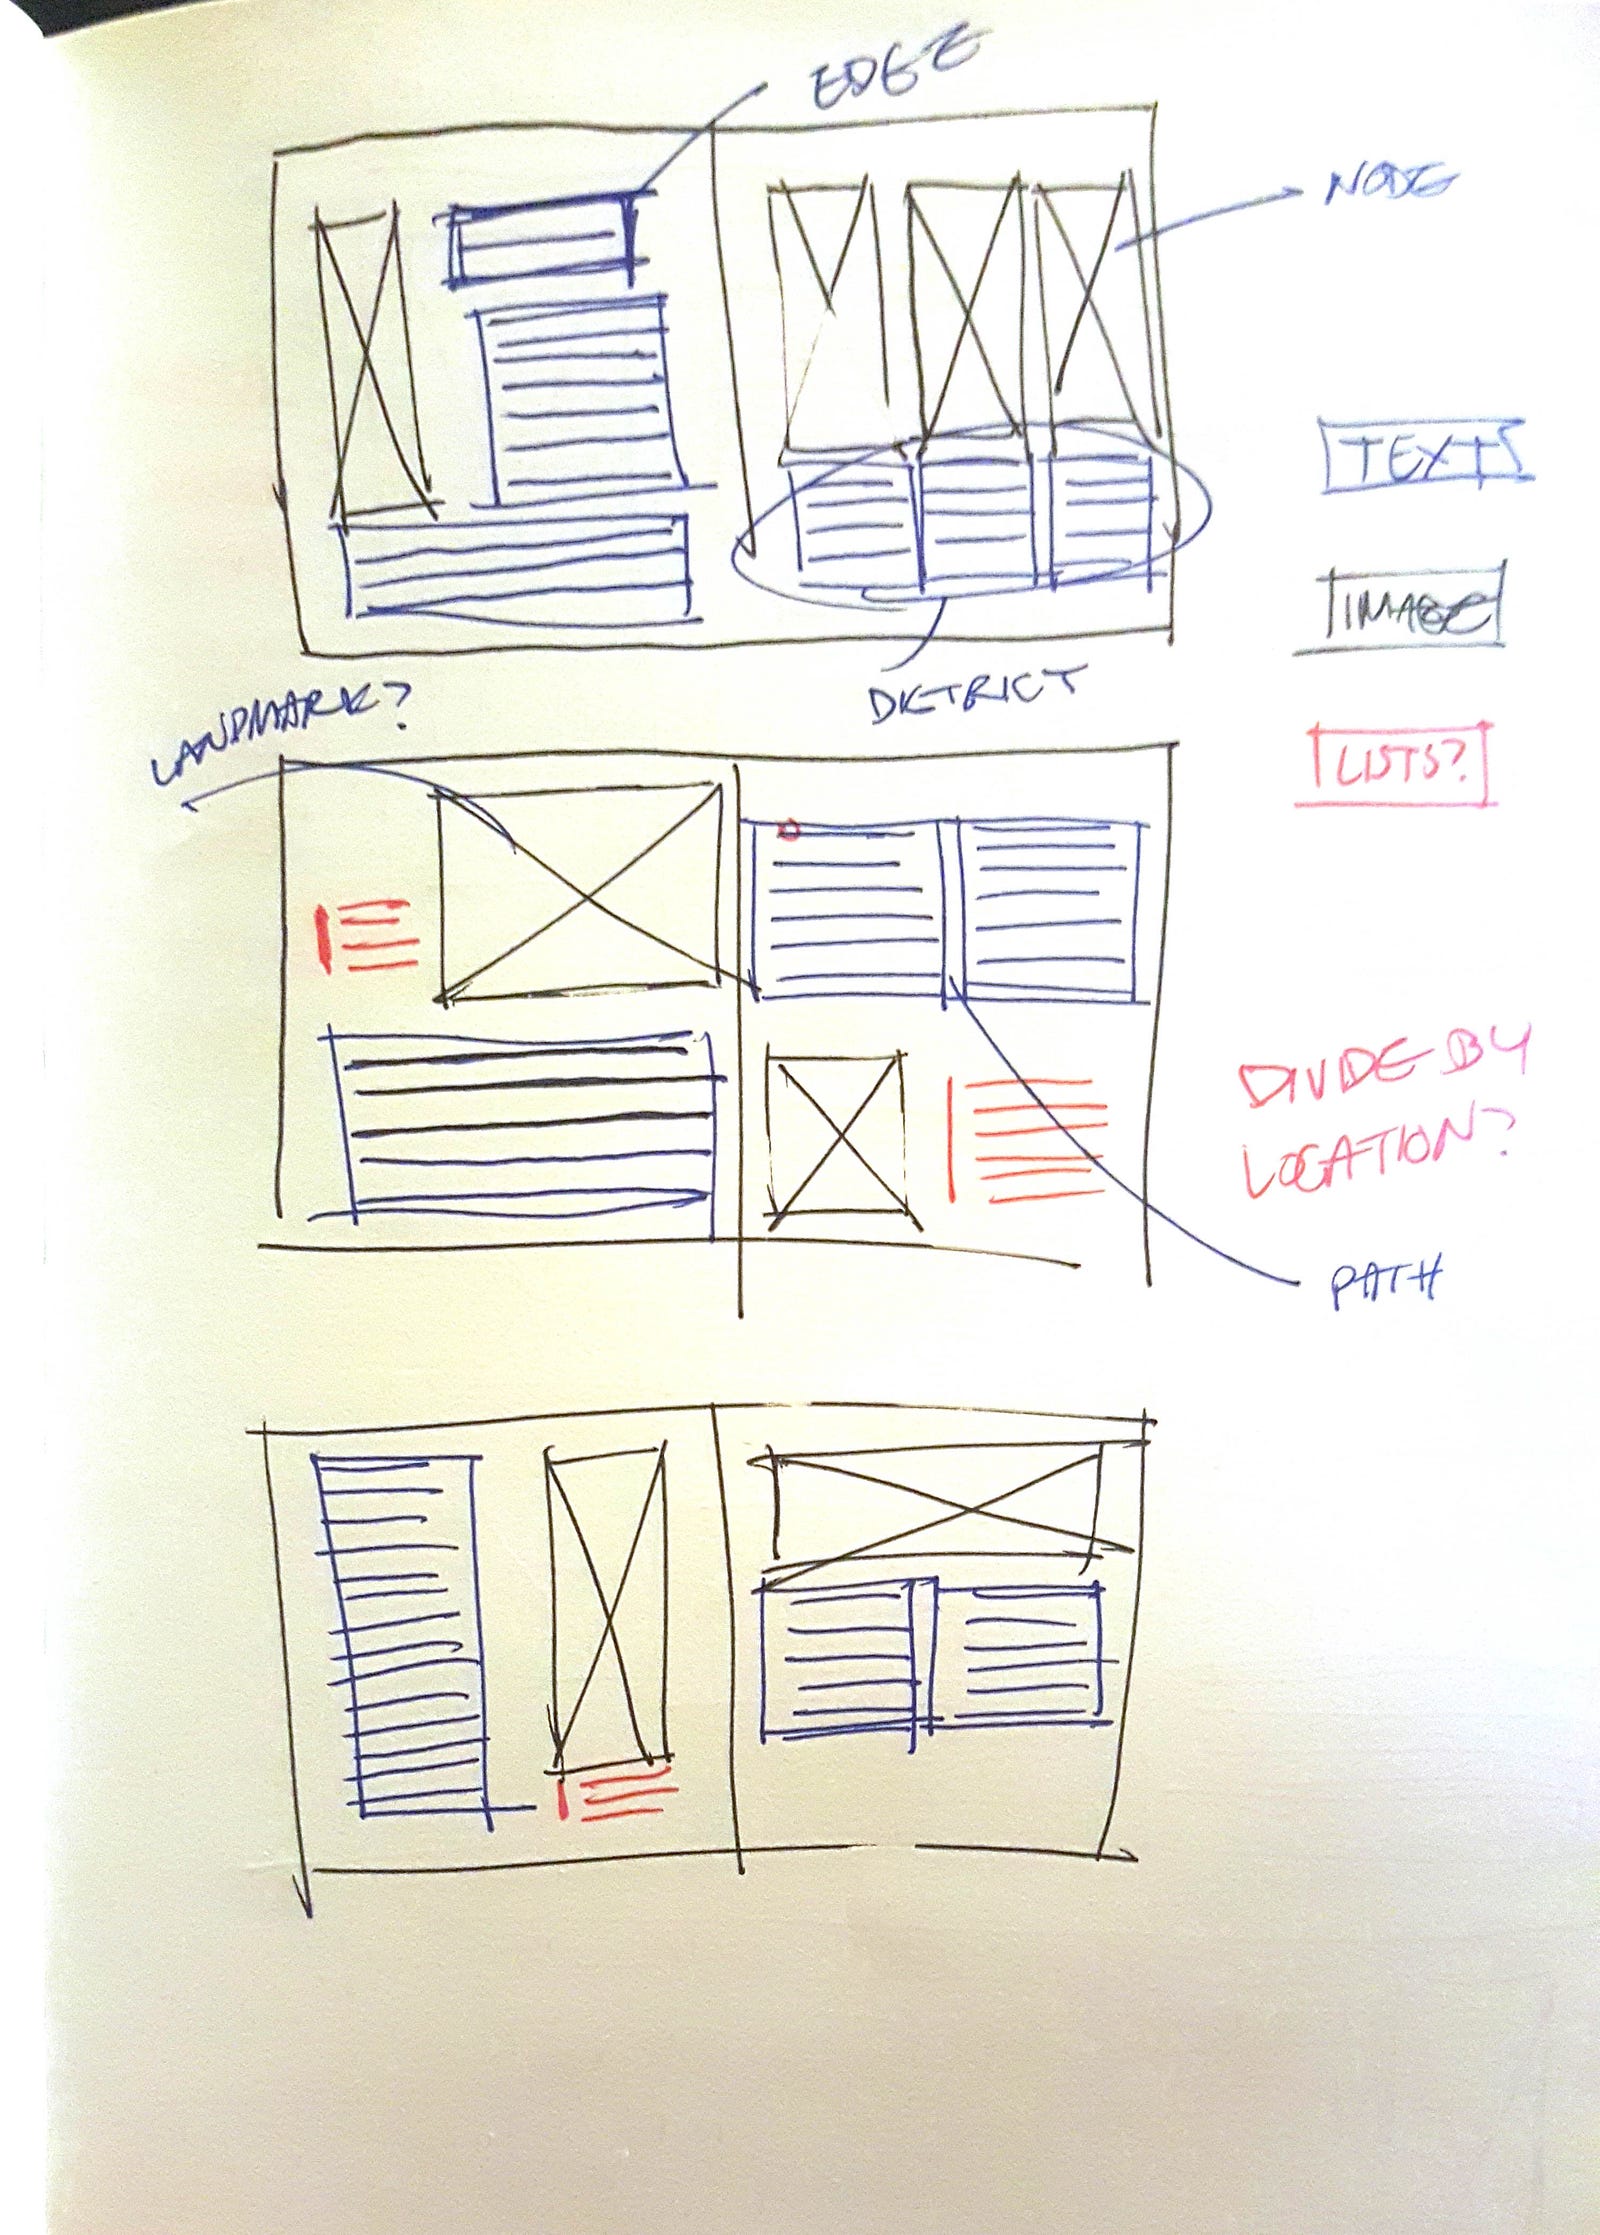 EDGE
NODE
TEXT
IMAGE
DISTRICT
LANDMARK?
LISTS?
DIVIDE BY
LOCATION?
PATH